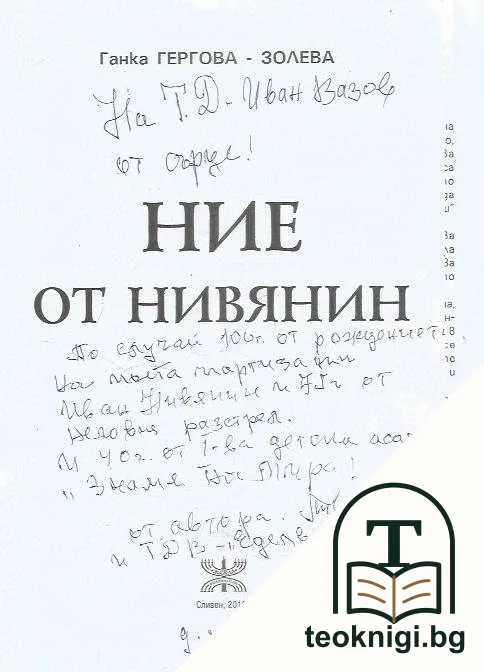 Ганка ГЕРГОВА - ЗОЛЕВА
На Т.Д. Иван Вазов
от сърце!
НИЕ
ОТ НИВЯНИН
По случай 100г. от рождението
на поета партизанин
Иван Нивянин и 75г от
неговия разстрел.
И 40г. от 1-ва детска
"Знаме на мира!
от автора.
и ТДВ-
Сливен, 201
T
teoknigi.bg